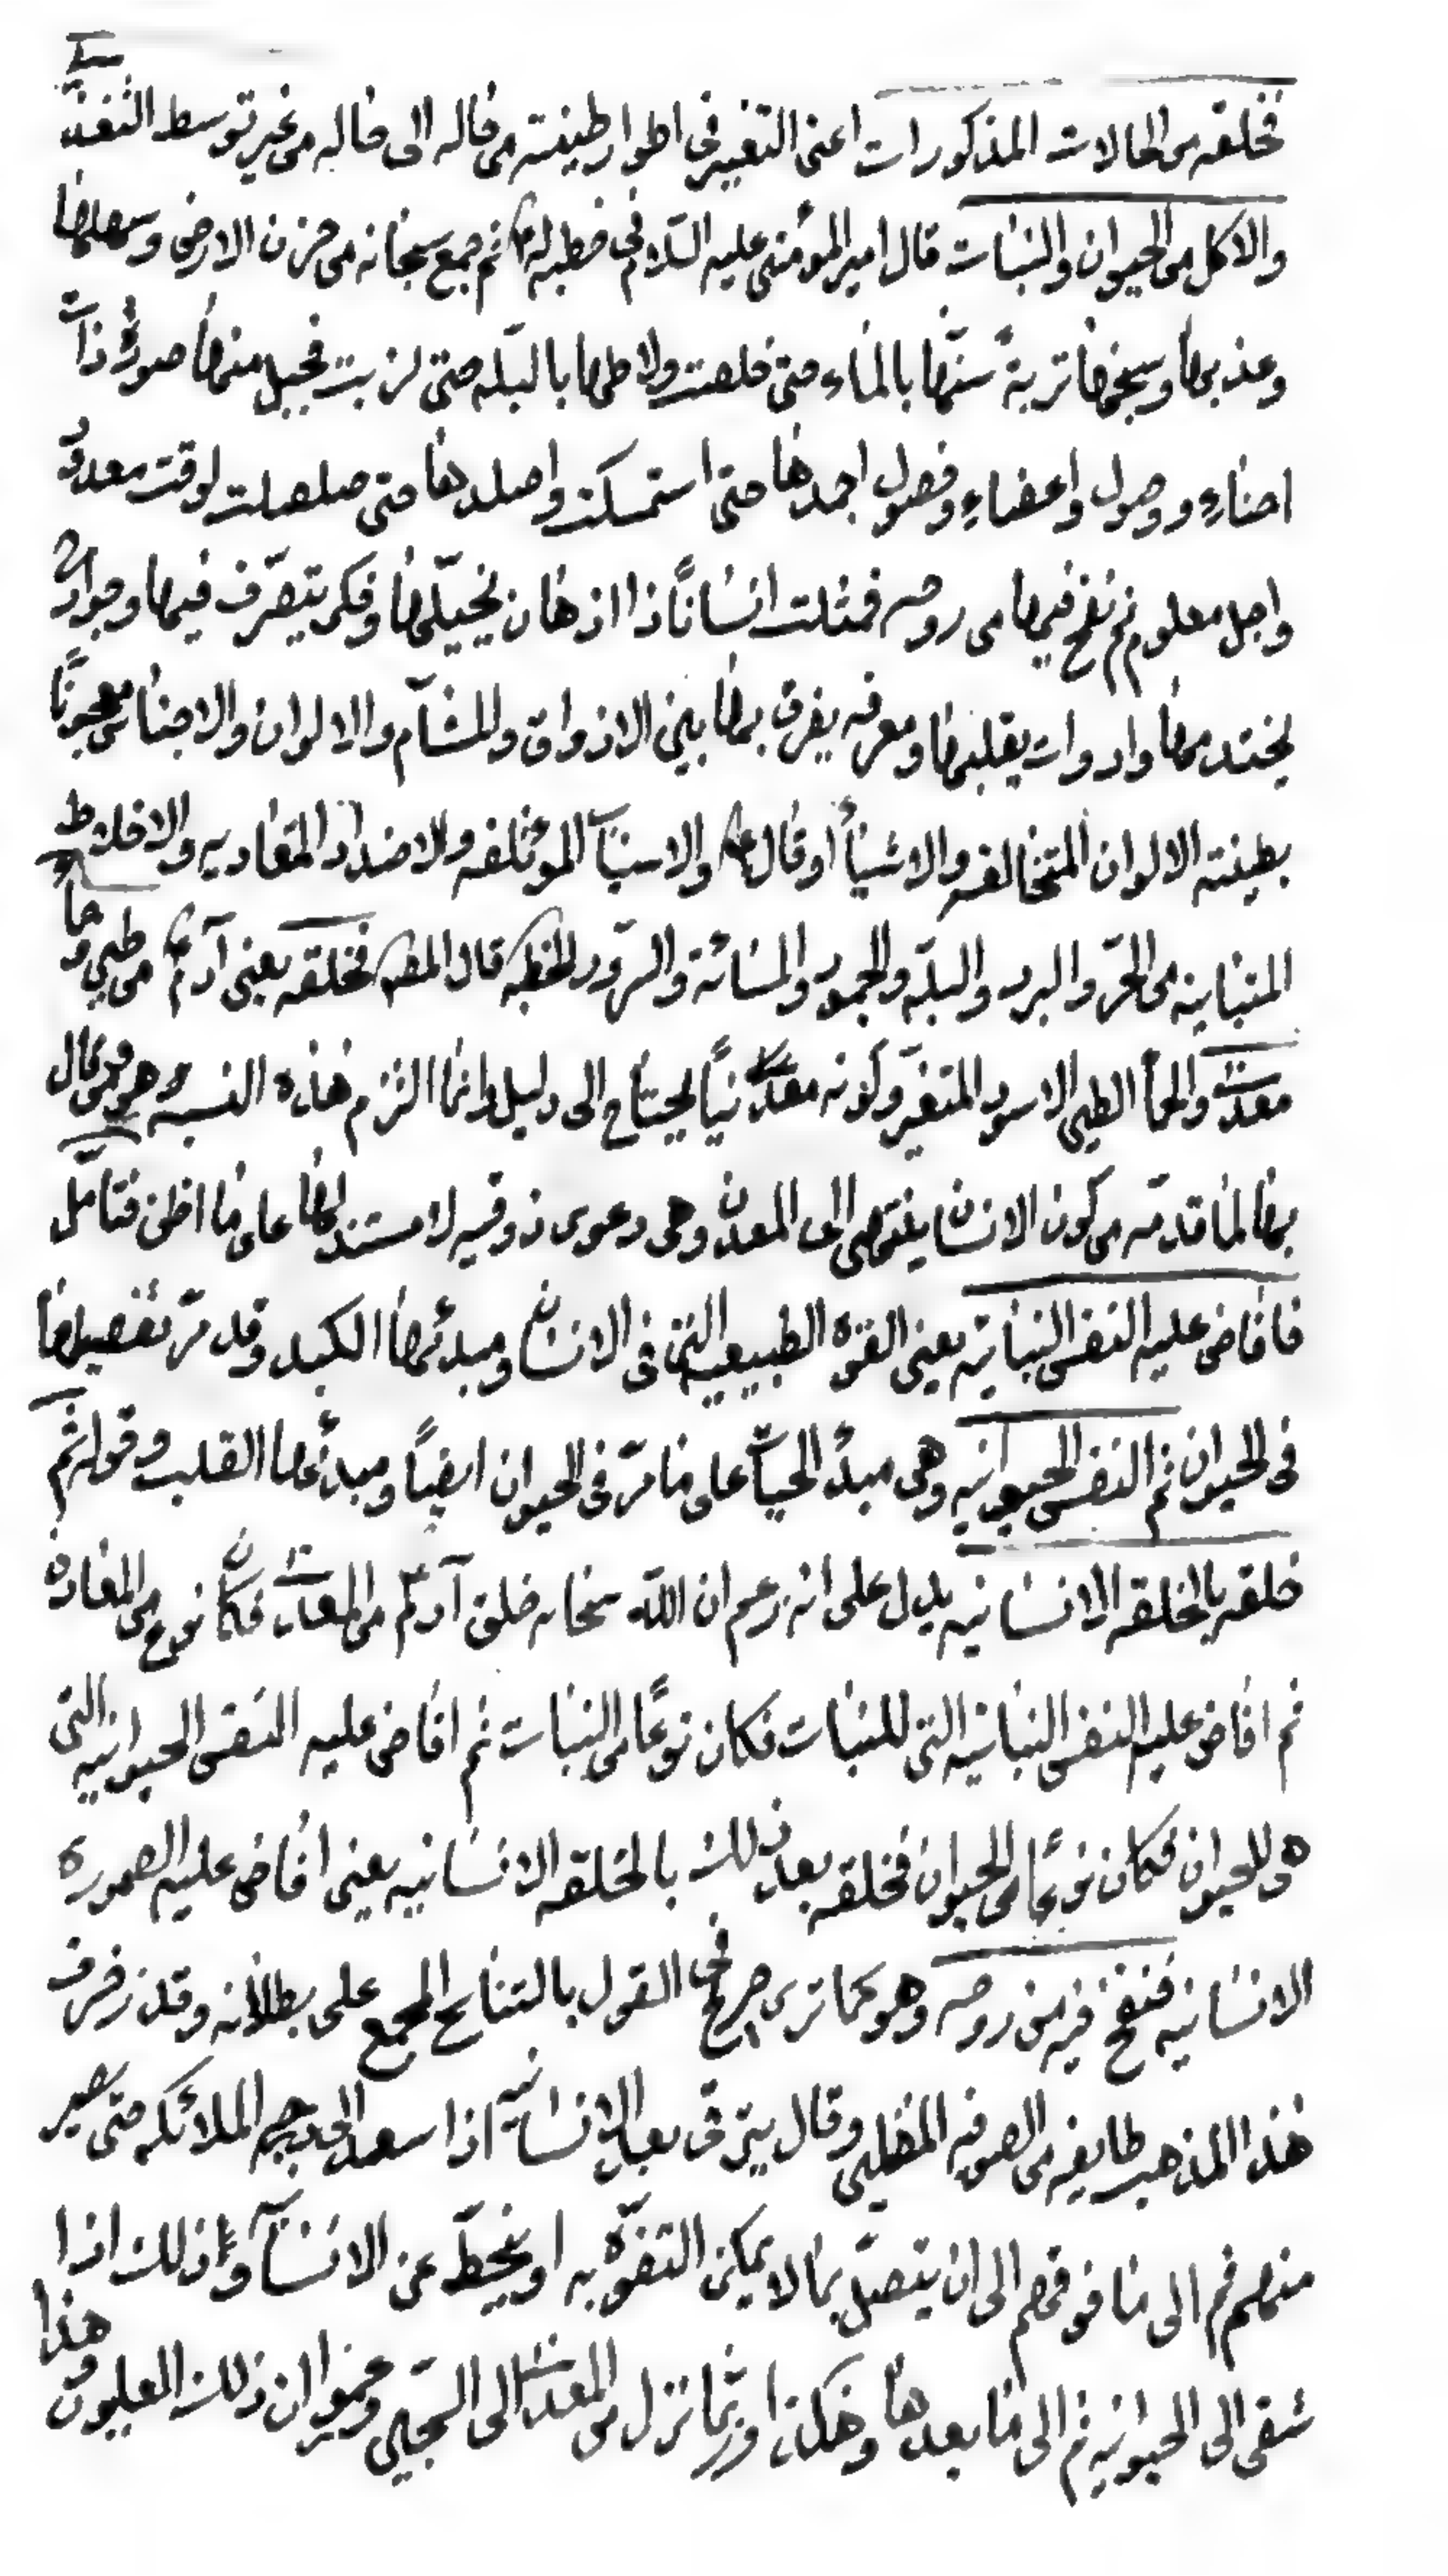 فخلقه من الحالات المذكورات اعنى التغيير فى اطوار طينته من حاله الى حاله من غير توسط التغذى
والاكل من الحيوان والنبات قال امير المؤمنين عليه السلام فى خطبه له ع ثم جمع سبحانه من حزن الارض وسهلها
وعذبها وسبخها تربةً سنّها بالماء حتى خلصت ولاطها بالبلّه حتى لزبت فجبل منها صورةً ذات
احناءٍ ووصول واعضاءٍ وفصول اجمدها حتى استمسكت واصلدها حتى صلصلت لوقت معدودٍ
واجل معلوم ثم نفخ فيها من روحه فمثلت انسانًا ذا اذهان يجيلها وفكر يتصرّف فيها وجوارح
يختدمها وادوات يقلبها ومعرفه يفرق بها بين الاذواق والمشآم والالوان والاجناس معجونًا
بطينته الالوان المتخالفه والاشيأ او قال ع والاشيآ المؤتلفه والاضداد المتعاديه والاخلاط
المتباينه من الحرّ والبرد والبلّه والجمود والمسائة والسرور الخطبه قال المص فخلقه يعنى آدم ع من طين وحمأ
معدنى والحمأ الطين الاسود المتغيّر وكونه معدنيًا يحتاج الى دليل وانما التزم هذه النسبه وهى وقال
بها لما قدمه من كون الانسان ينتهى الى المعدن وهى دعوى ذوقيه لا مستند لها على ما اظن فتأمّل
فافاض عليه النفس النباتيه يعنى القوه الطبيعيه التى فى الانسان ومبدئها الكبد وقد مرّ تفصيلها
فى الحيوان ثم النفس الحيوانيه وهى مبدأ الحياة على ما مرّ فى الحيوان ايضًا ومبدئها القلب وقوله ثم
خلقه بالخلقه الانسانيه يدل على انه زعم ان الله سبحانه خلق آدم ع من المعادن فكان نوع من المعادن
ثم افاض عليه النفس النباتيه التى للنبات فكان نوعًا من النبات ثم افاض عليه النفس الحيوانيه التى
هى للحيوان فكان نوعًا من الحيوان فخلقه بعد ذلك بالخلقه الانسانيه يعنى افاض عليه الصوره
الانسانيه فنفخ فيه من روحه وهو كما ترى صريح فى القول بالتناسخ المجمع على بطلانه وقد زخرف
هذا المذهب طايفه من الصوفيه المضلين وقال يترقى بعد الانسانيه اذا سعد الى درجه الملائكه حتى يصير
منهم ثم الى ما فوقهم الى ان يتصل بما لا يمكن التفوّه به او ينحطّ عن الانسانيه وذلك اذا
شقى الى الحيوانيه ثم الى ما بعدها وهكذا وربما نزل من المعدن الى السجين وعمّوا ان ذلك المعلبون وهذا